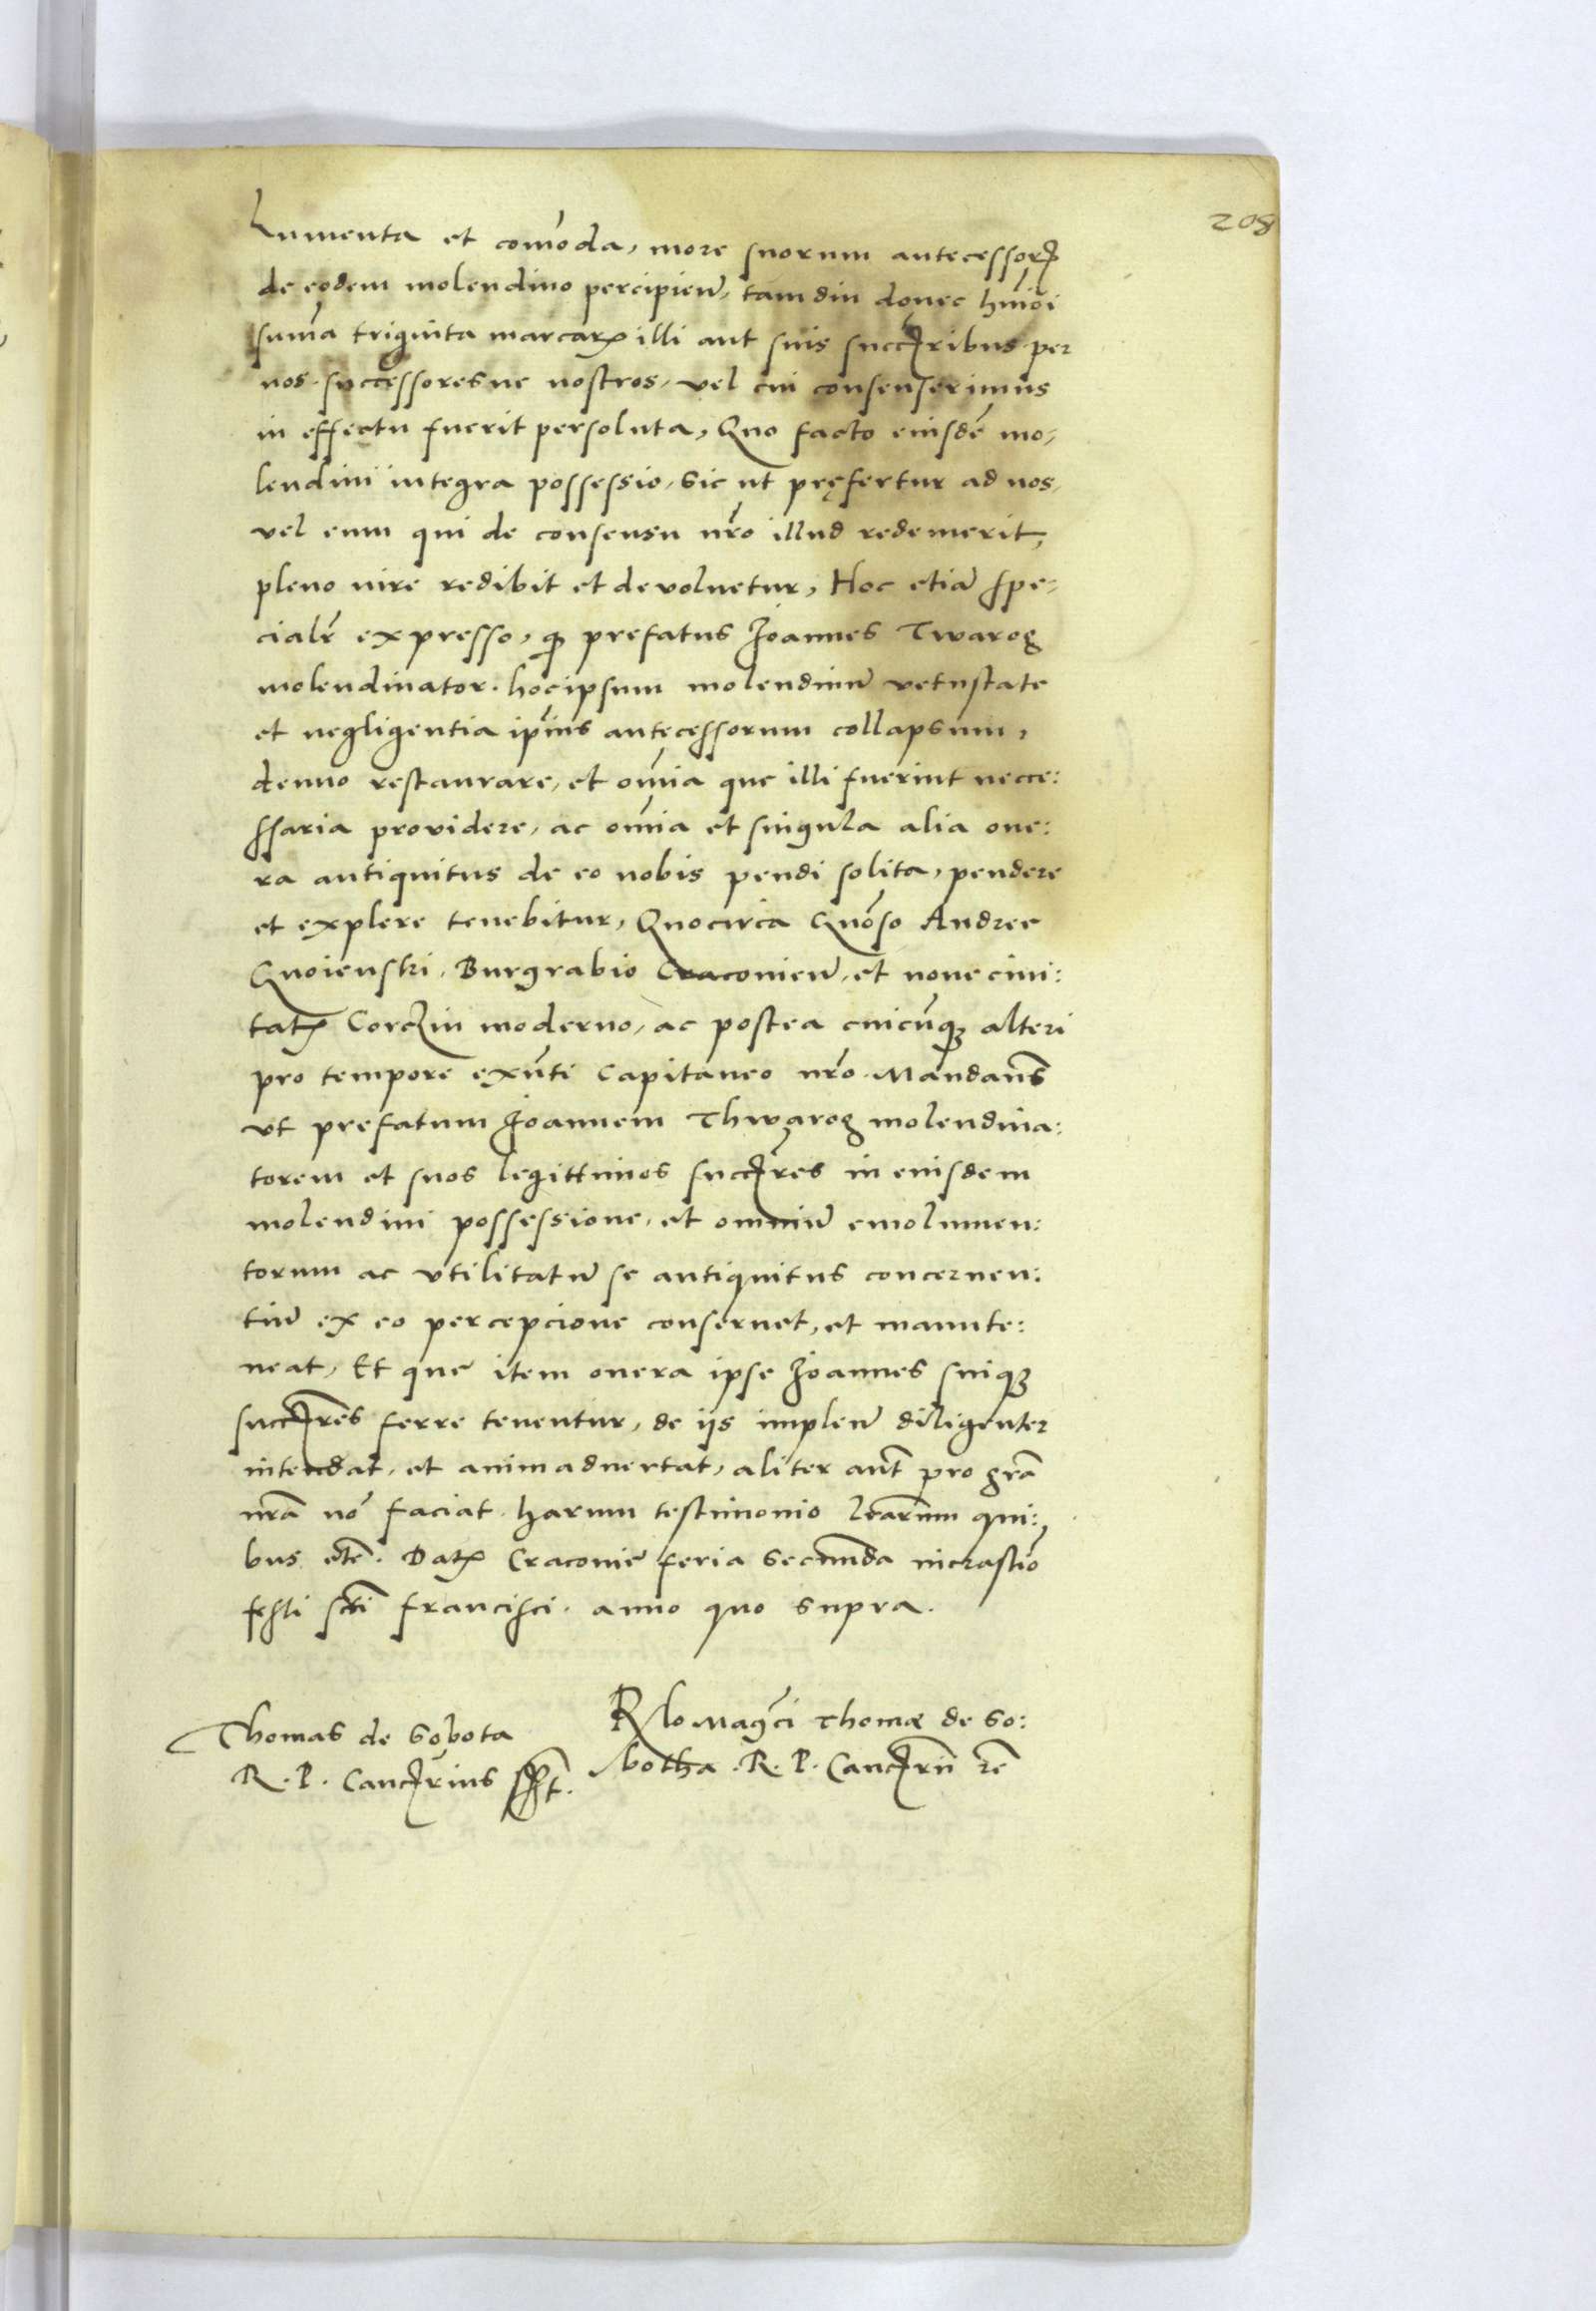 208
lumenta et com̃oda, more suorum antecessorꝝ
de eodem molendino percipieñ, tam diu donec hm̃oi
sum̃a triginta marcarꝝ illi aut suis succꝭribus per
nos successoresue nostros, vel cui consenserimus
in effectu fuerit persoluta, Quo facto eiusdẽ mo-
lendini integra possessio, sic ut pręfertur ad nos,
vel eum qui de consensu nr̃o illud redemerit,
pleno iure redibit et devoluetur, Hoc etiã spe-
cialr̃ expresso, ꝙ prefatus Joannes Twarog
molendinator hoc ipsum molendinũ vetustate
et negligentia ip̃ius antecessorum collapsum,
denuo restaurare, et om̃ia que illi fuerint necce:
ssaria providere, ac om̃ia et singula alia one:
ra antiquitus de eo nobis pendi solita, pendere
et explere tenebitur, Quocirca Gñoso Andree
Gnoienski Burgrabio Cracovieñ, et nove ciui:
tatꝭ Corczin moderno, ac postea cuicũqꝫ alteri
pro tempore exñti Capitaneo nr̃o Mandam̃s
vt prefatum Joannem Thwarog molendina:
torem et suos legittimos succꝭres in eiusdem
molendini possessione, et omniũ emolumen:
torum ac vtilitatũ se antiquitus concernen:
tiũ ex eo percepcione conseruet, et manute:
neat, Et que item onera ipse Joannes suiqꝫ
succꝭres ferre tenentur, de iis impleñ diligenter
intendat, et animaduertat, aliter aũt pro gr̃a
nr̃a nõ faciat harum testimonio lr̃arum qui:
bus etc̃. Datꝭ Cracovie feria secunda in crastĩo
festi sc̃ti francisci anno quo supra.
Thomas de Sobota
R. P. Cancꝭrius sspt.
Rlo Mag̃ci Thomæ de So:
botha R. P. Cancꝭrii re